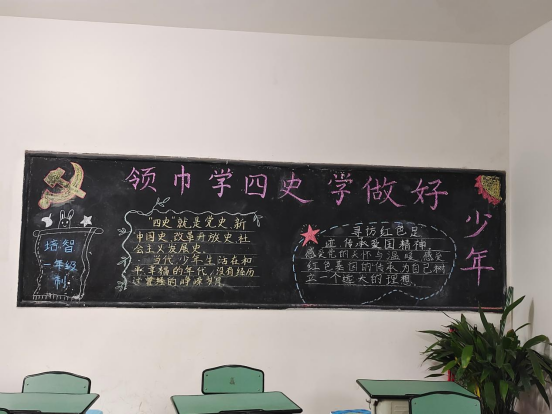 领巾学四史 学做好
少年
培智
一年级
制
"四史"就是党史 新
中国史 改革开放史 社
会主义发展史
当代少年生活在和
平幸福的年代,没有经历
过
岁月
寻访红色足
迹 传承爱国精神
感受党的关怀与温暖,感受
红色基因的传承,为自己树
立一个远大的理想